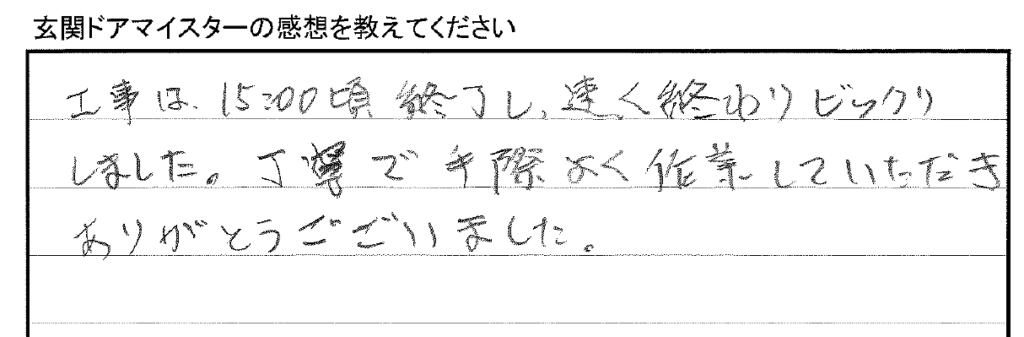 玄関ドアマイスターの感想を教えてください
工事は、15:00頃終了し、速く終わりビックリ
しました。丁寧で手際よく作業していただき
ありがとうございました。